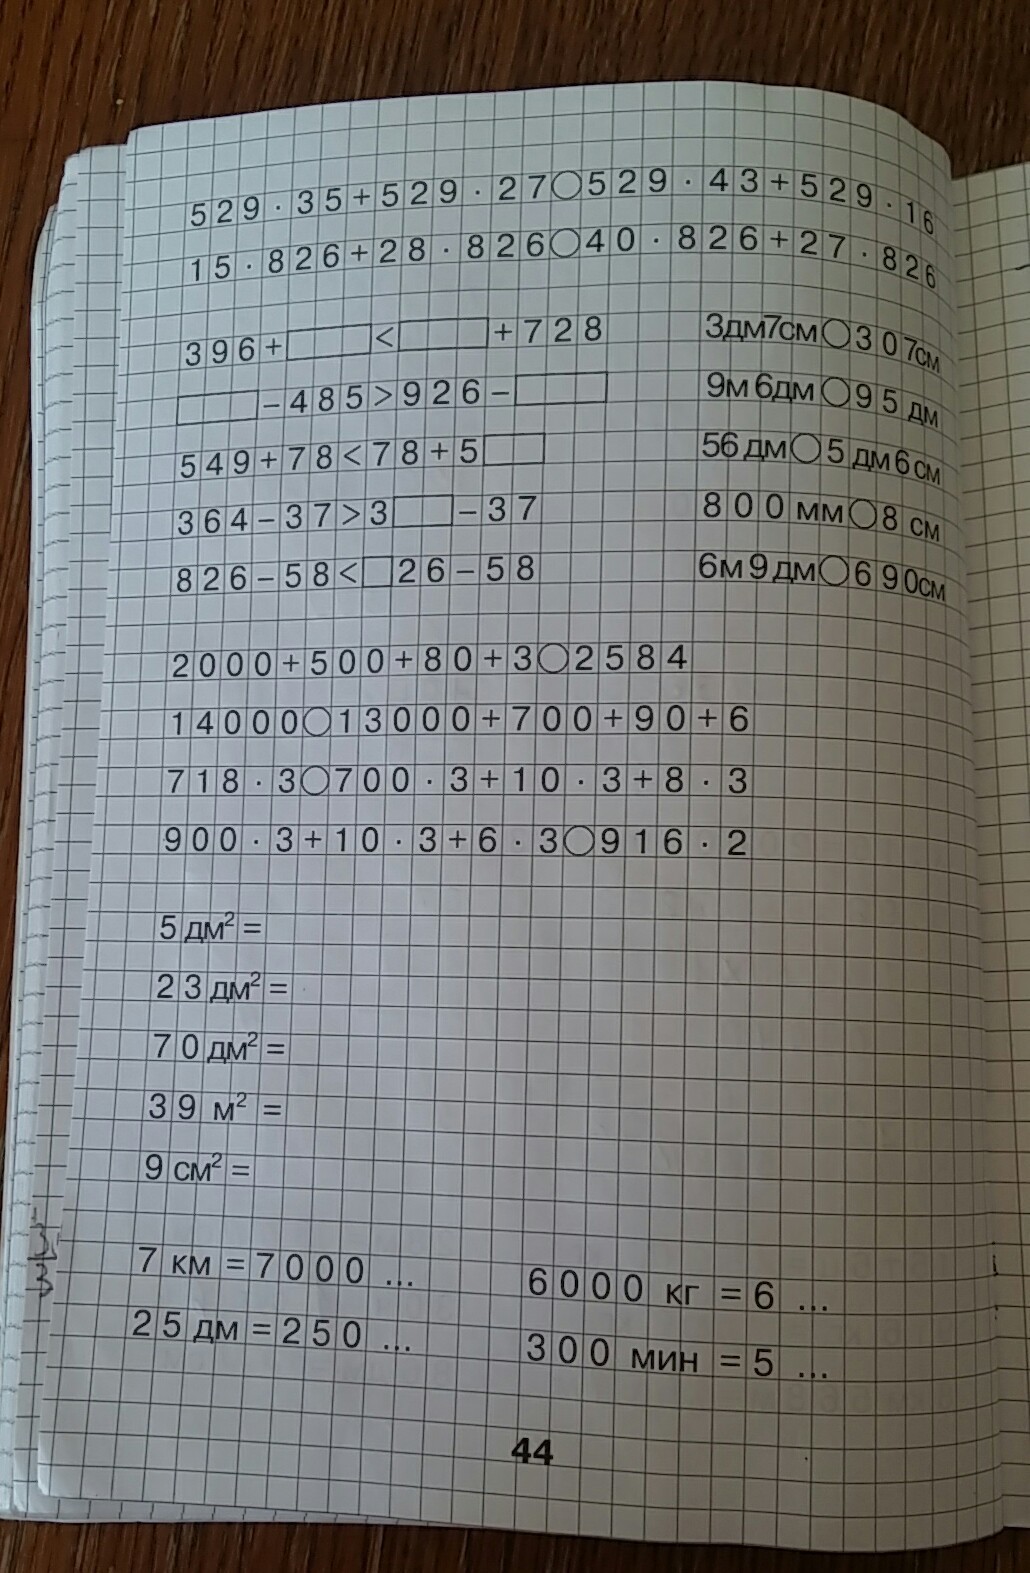 529·35+529·27○529·43+529·16
15·826+28·826○40·826+27·826
396+□<□+728
3дм7см○307см
□-485>926-□
9м6дм○95дм
549+78<78+5□
56дм○5дм6см
364-37>3□-37
800мм○8см
826-58<□26-58
6м9дм○690см
2000+500+80+3○2584
14000○13000+700+90+6
718·3○700·3+10·3+8·3
900·3+10·3+6·3○916·2
5 дм²=
23 дм²=
70 дм²=
39 м²=
9 см²=
7 км=7000 ...
6000 кг=6 ...
25 дм=250 ...
300 мин=5 ...
44